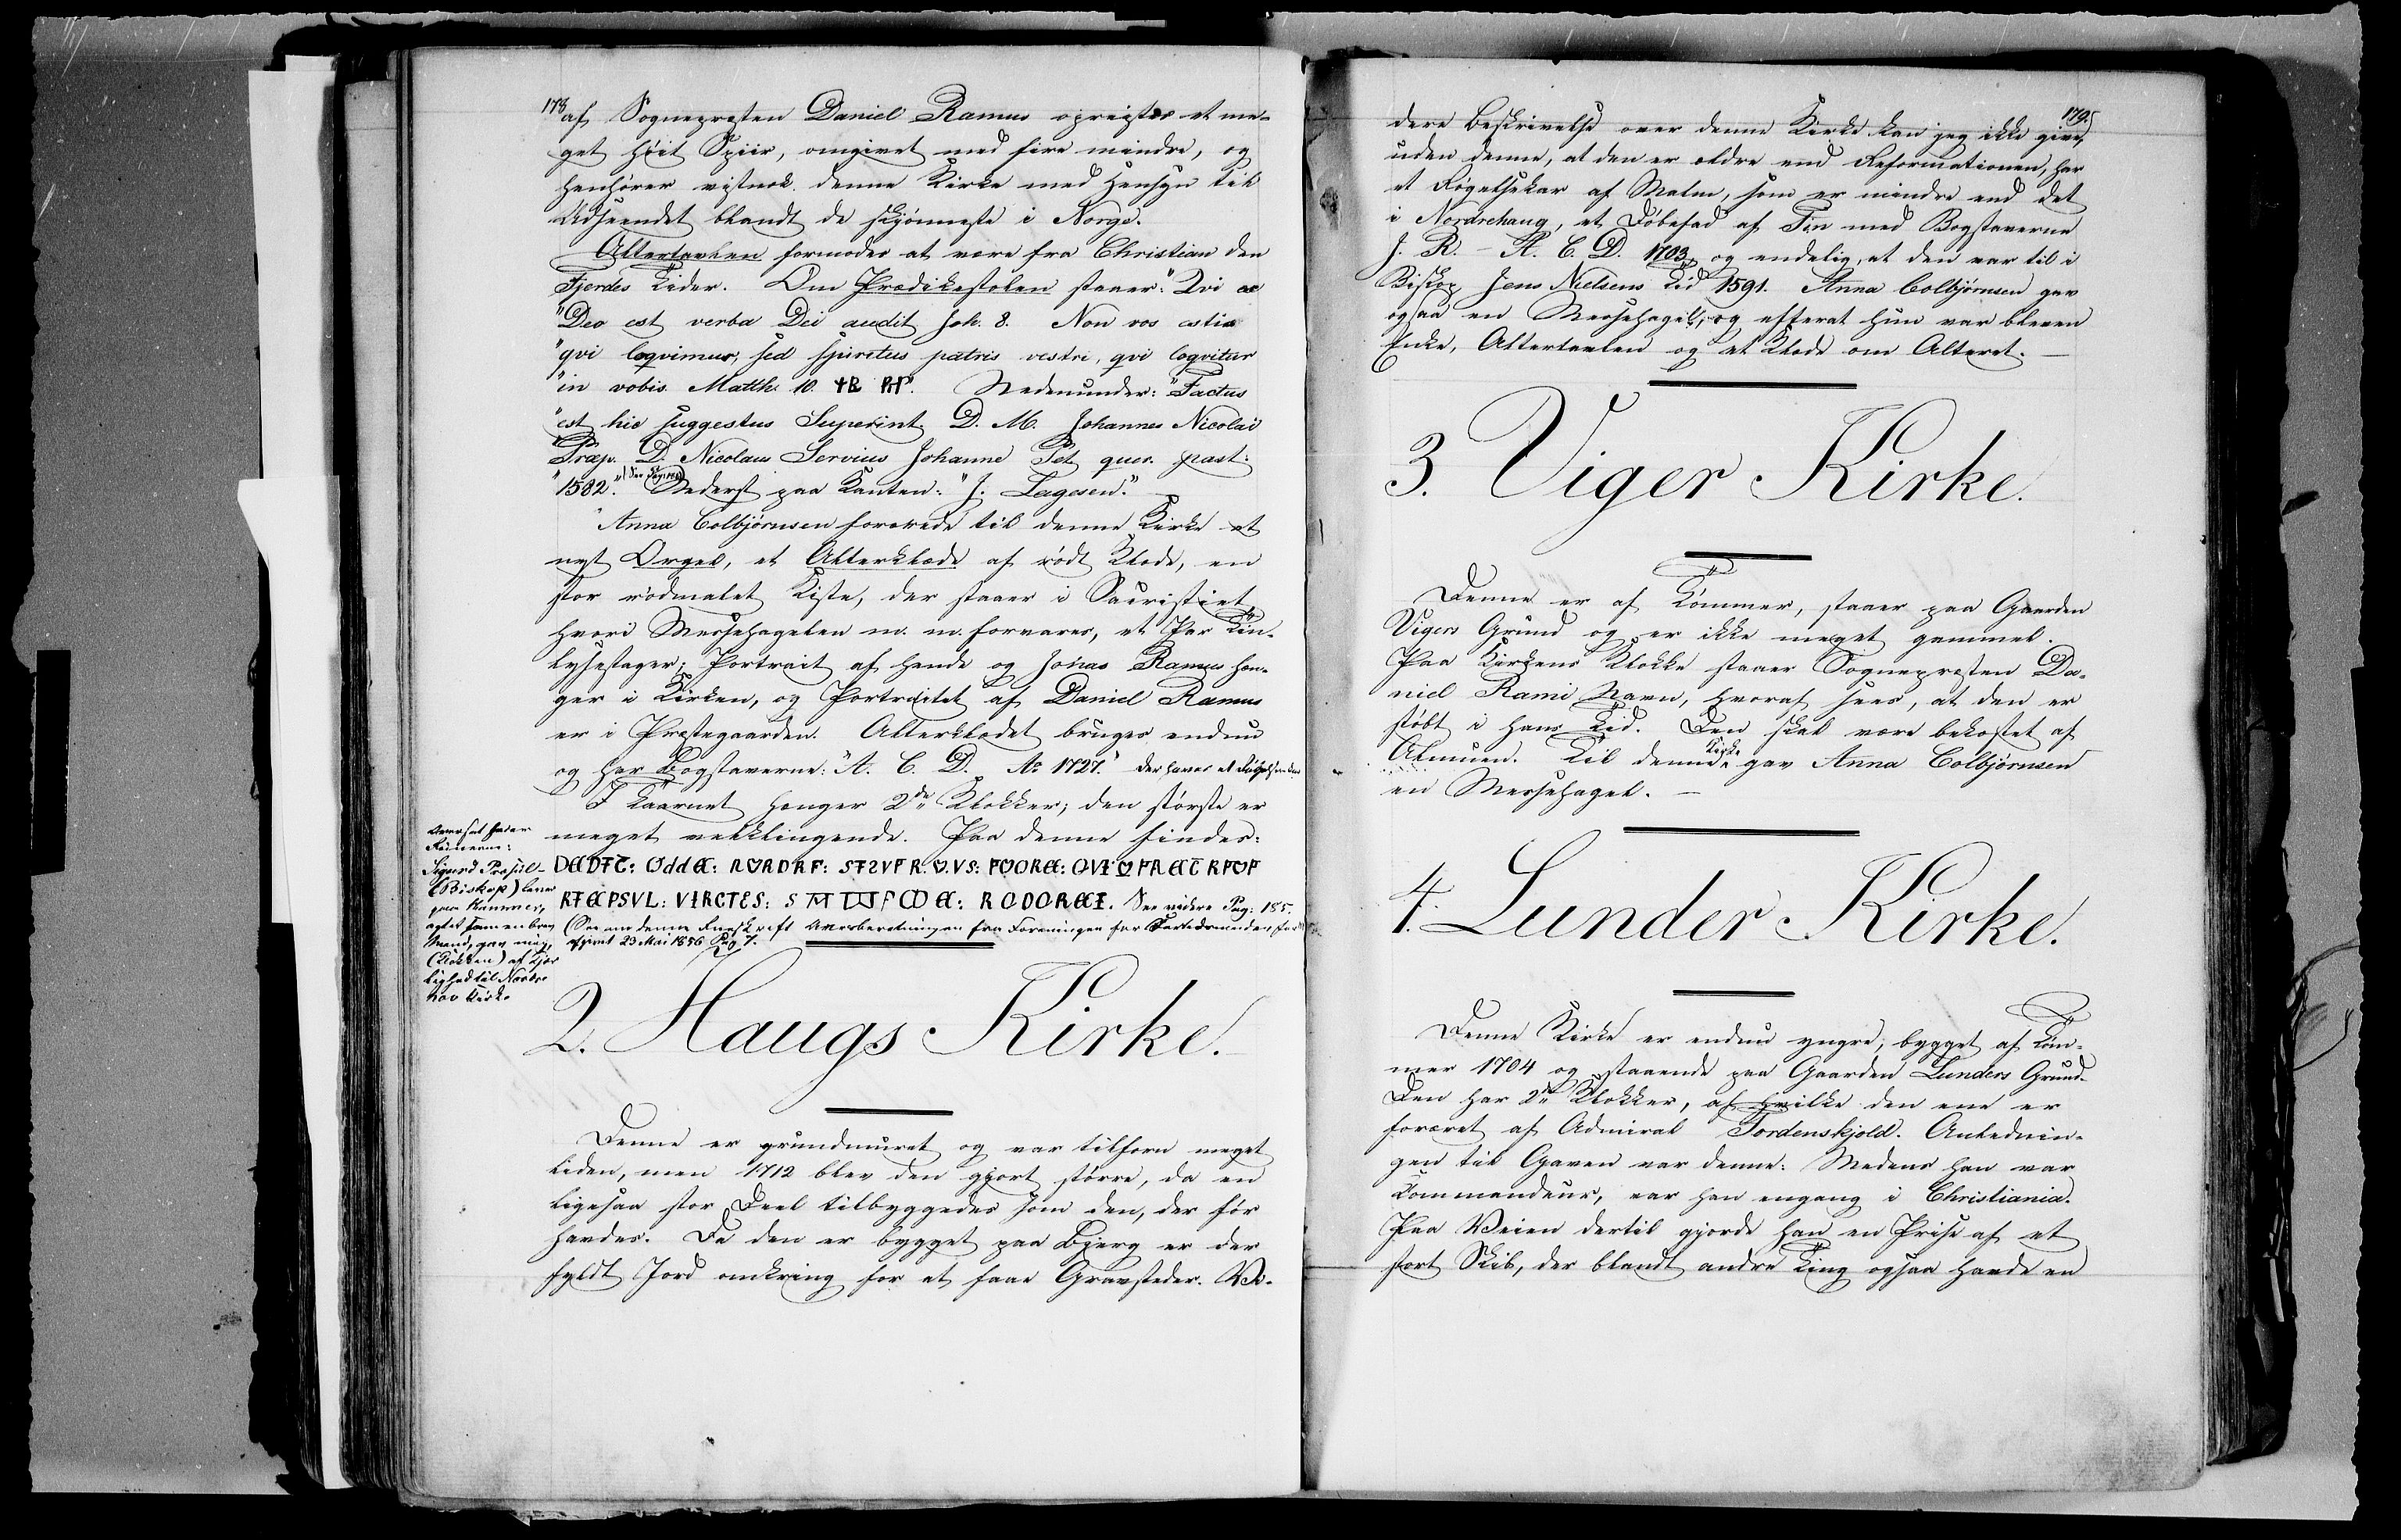 178
af Sognepræsten Daniel Ramus opreistes et me-
get høit Spiir, omgivet med fire mindre, og
henhører vistnok denne Kirke med Hensyn til
Udseendet blandt de skjønneste i Norge.
Altertavlen formodes at være fra Christian den
Fjerdes Tider. Om Prædikestolen staaer: "Qvi ex
"Deo est verba Dei audit Joh. 8. Non vos estis
"qvi loqvimur, sed spiritus patris vestri, qvi loqvitur
"in vobis. Matth. 10. Nedenunder: "Factus
"est hic suggestus Superint. D. M. Johannes Nicolai
"Præp. D. Nicolaus Servius Johanne Pet. quer. past.
"1582." Nederst paa Kanten: "J. Lagesen."
Anna Colbjørnsen forærede til denne Kirke et
nyt Orgel, et Alterklæde af rødt Klæde, en
stor rødmalet Kiste, der staaer i Sacristiet,
hvori Messehagelen m. m. forvares, et Par Tin-
lysestager; Portrait af hende og Jonas Ramus hæn-
ger i Kirken, og Portraitet af Daniel Ramus
er i Præstegaarden. Alterklædet bruges endnu
og har Bogstaverne: "A. C. D. Ao 1727." der haves et Røgelseskar
I Taarnet hænger 2de Klokker; den største er
meget velklingende. Paa denne findes:
(See om denne Indskrift Aarsberetningen fra Foreningen for Fortidsminder
afgivet 23 Mai 1856 Pag 7.
See videre Pag: 185.
Oversat
Runerne:
Sigurd
(Biskop)
paa Hammer,
agtet som en brav
Mand, gav mig,
(Klokken) af Kjær
lighed til Nordre
hov Kirke
2. Haugs Kirke.
Denne er grundmuret og var tilforn meget
liden, men 1712 blev den gjort større, da en
ligesaa stor Deel tilbyggedes som den, der før
havdes. Da den er bygget paa Bjerg er der
fyldt Jord omkring for at faae Gravsteder. Vi-
179.
dere Beskrivelse over denne Kirke kan jeg ikke give,
uden denne, at den er ældre end Reformationen, har
et Røgelsekar af Malm, som er mindre end det
i Nordrehaug, et Døbefad af Tin med Bogstaverne
J. R. - A. C. D. 1703, og endelig, at den var til i
Biskop Jens Nielsens Tid 1591. Anna Colbjørnsen gav
ogsaa en Messehagel, og efterat hun var bleven
Enke, Altertavlen og et Klæde om Alteret. —
3. Viger Kirke.
Denne er af Tømmer, staaer paa Gaarden
Vigers Grund og er ikke meget gammel.
Paa Kirkens Klokke staaer Sognepræsten Da-
niel Rami Navn, hvoraf sees, at den er
støbt i hans Tid. Den skal være bekostet af
Almuen. Til denne Kirke gav Anna Colbjørnsen
en Messehagel. —
4. Lunder Kirke.
Denne Kirke er endnu yngre, bygget af Tøm-
mer 1704 og staaende paa Gaarden Lunders Grund.
Den har 2de Klokker, af hvilke den ene er
foræret af Admiral Tordenskjold. Anlednin-
gen til Gaven var denne: Medens han var
Commandeur, var han engang i Christiania.
Paa Veien dertil gjorde han en Prise af et
stort Skib, der blandt andre Ting ogsaa havde en